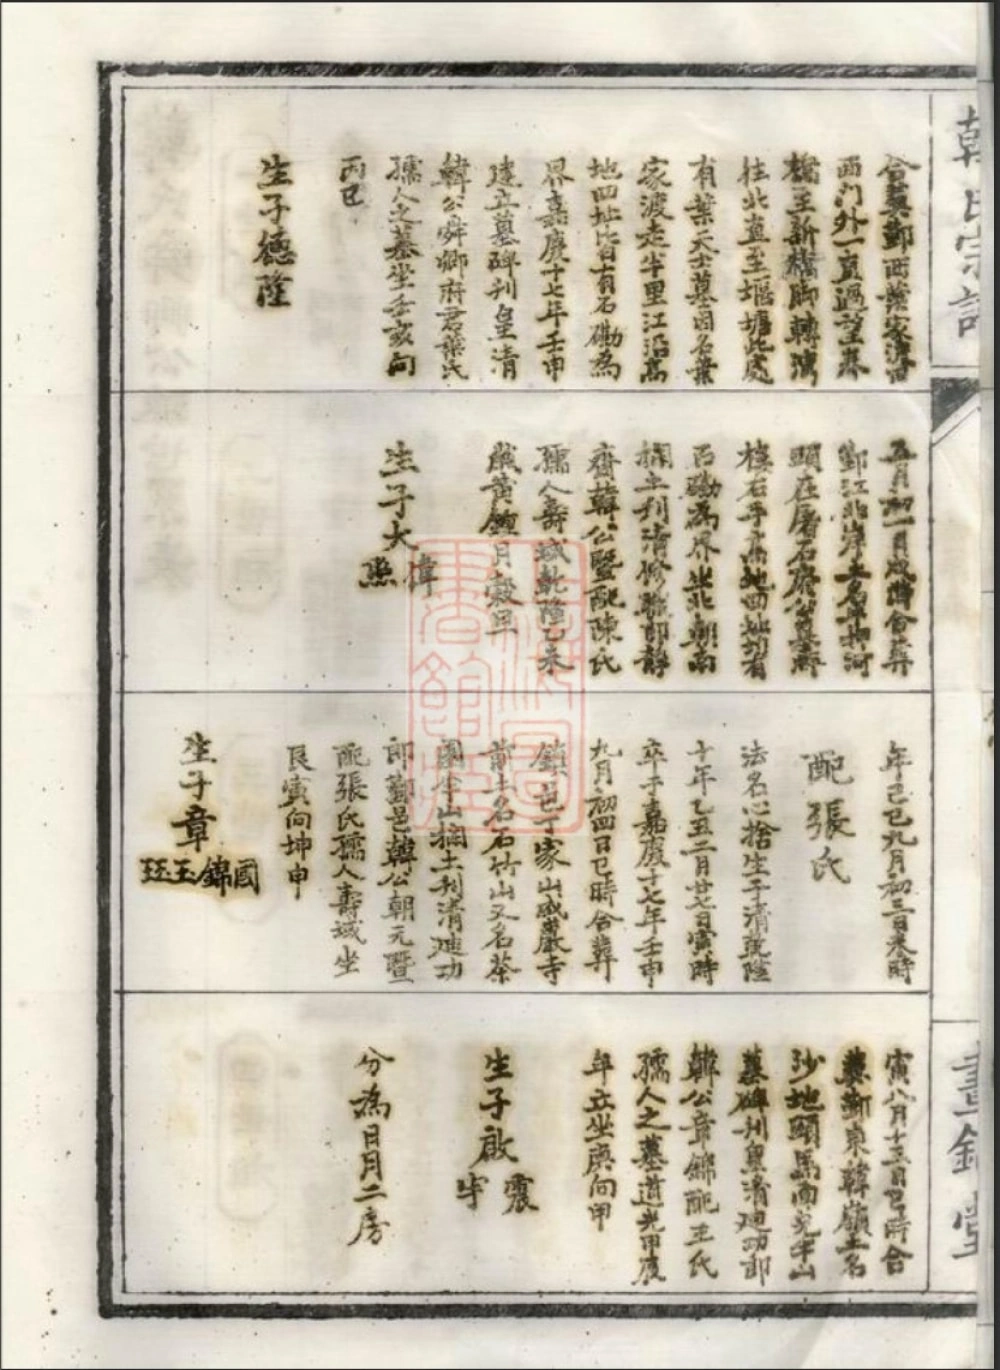 韓氏宗譜
合葬鄞西葉家渡
西門外一直過望春
橋至新橋脚轉灣
往北直至堰塘此處
有葉天士墓因名葉
家渡走半里江沿為
地四址皆有石勒為
界嘉慶十七年壬申
建立墓碑刊皇清
韓公舜卿府君葉氏
孺人之墓坐壬亥向
丙巳
生子德隆
五月初一日戌時合葬
鄞江北岸土名草柳河
頭在屠石府公墓
樣石手為地四址刊有
石勒為界坐北朝南
擱土刊清修職郎靜
齋韓公暨配陳氏
孺人壽域乾隆乙未
歲黃鐘月穀旦
生子大
偉
熊
年己巳九月初三日辰時
配張氏
法名心捨生于清乾隆
十年乙丑二月廿七日寅時
卒于嘉慶十七年壬申
九月初四日巳時合葬
鎮邑丁家山威嚴寺
前土名石竹山又名茶
園傘山擱土刊清迪功
郎鄞邑韓公朝元暨
配張氏孺人壽域坐
艮寅向坤申
生子章
國錦玉珏
寅八月十三日巳時合
葬鄞東韓嶺土名
沙地頭馬面兜半山
墓碑刊皇清迪功郎
韓公章錦配王氏
孺人之墓道光甲辰
年立坐庚向甲
生子啟
震
宇
分為日月二房
晝錦堂